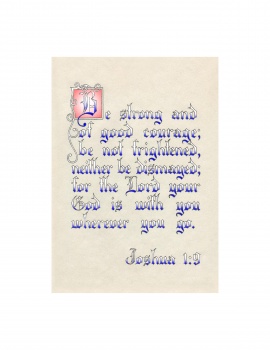 Be strong and
of good courage;
be not frightened,
neither be dismayed;
for the Lord your
God is with you
wherever you go.
Joshua 1:9